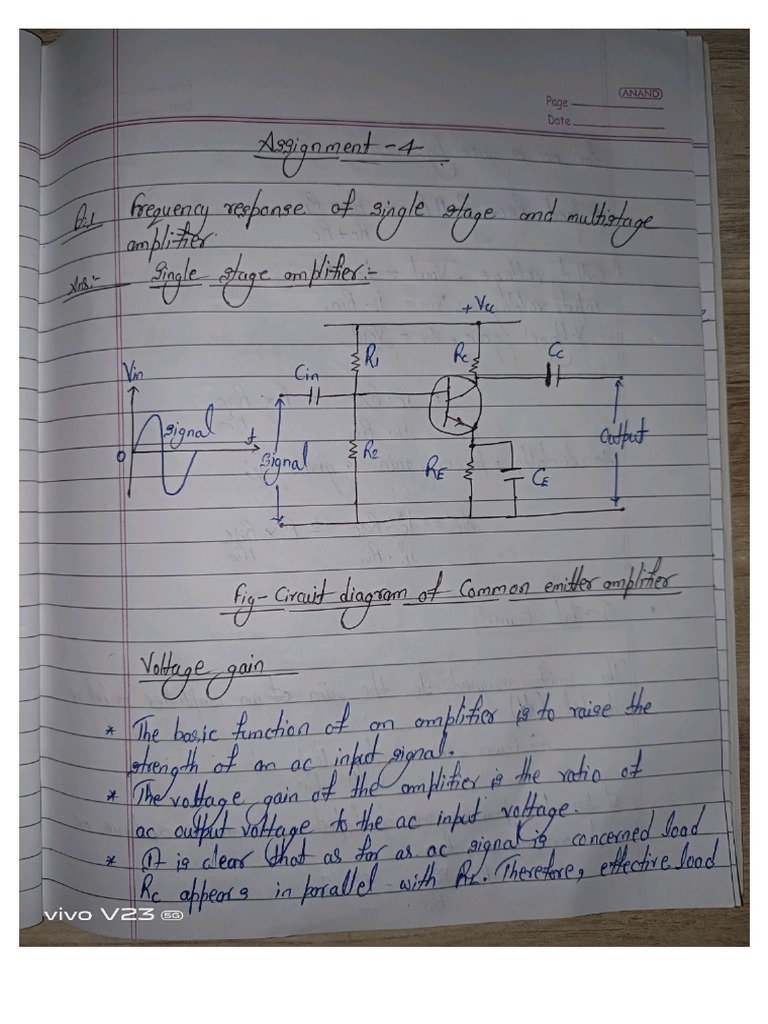 ANAND
Page
Date
Assignment -4-
Q.1 Frequency response of single stage and multistage
amplifier.
Ans:- Single stage amplifier:-
+Vcc
R1
Rc
Cc
Vin
Cin
signal
t
0
signal
R2
RE
CE
Output
Fig- Circuit diagram of Common emitter amplifier
Voltage gain
* The basic function of an amplifier is to raise the
strength of an ac input signal.
* The voltage gain of the amplifier is the ratio of
ac output voltage to the ac input voltage.
* It is clear that as far as ac signal is concerned load
Rc appears in parallel with RL. Therefore, effective load
vivo V23 5G